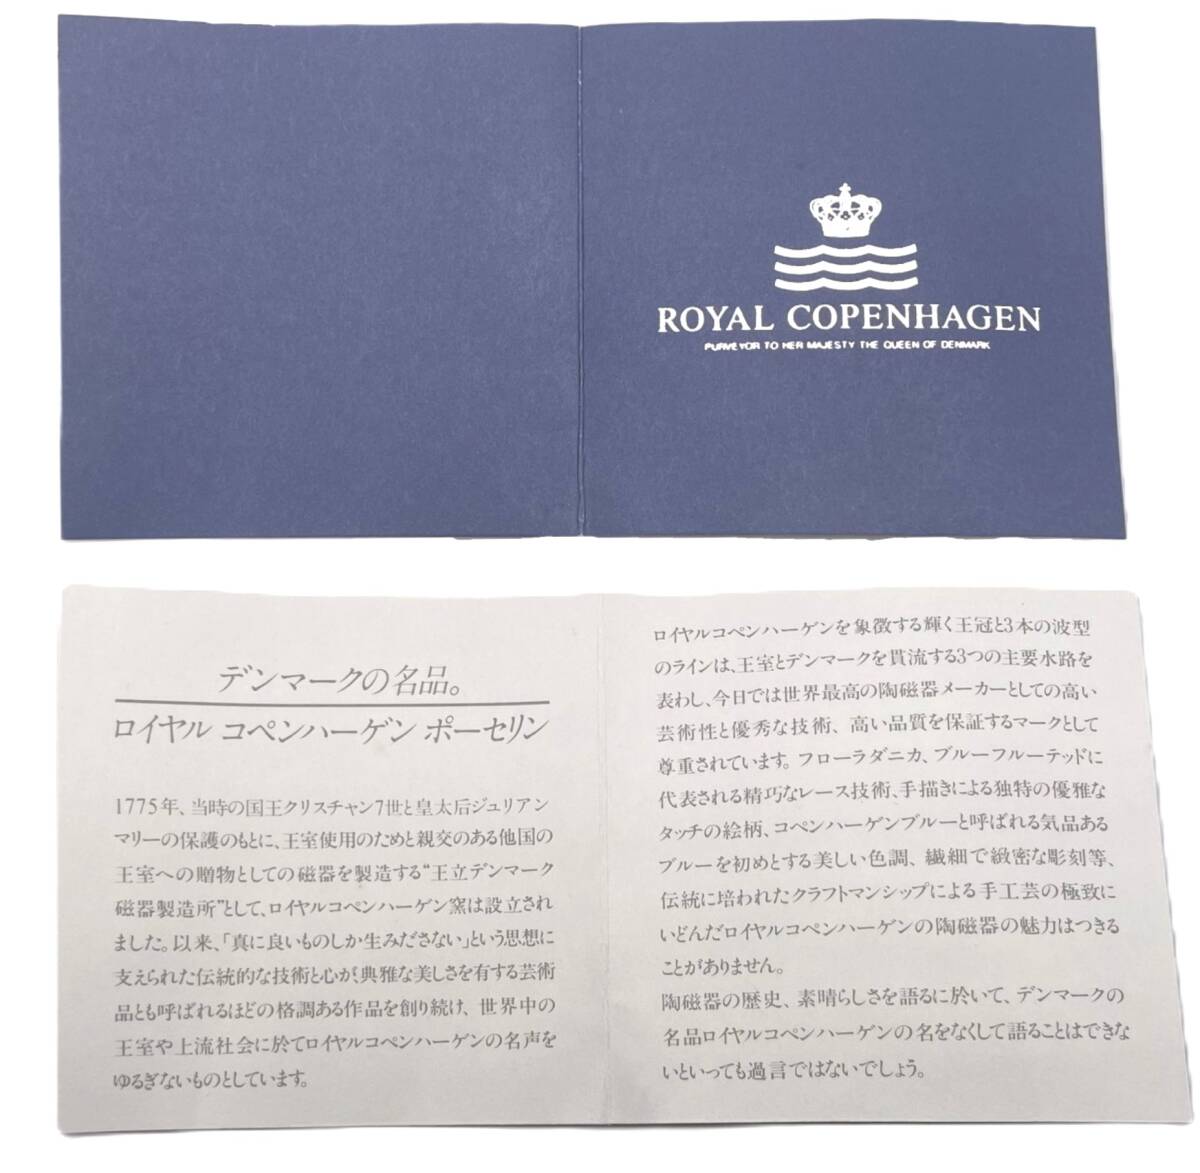 ROYAL COPENHAGEN
PURVEYOR TO HER MAJESTY THE QUEEN OF DENMARK
デンマークの名品。
ロイヤル コペンハーゲン ポーセリン
1775年、当時の国王クリスチャン7世と皇太后ジュリアン
マリーの保護のもとに、王室使用のためと親交のある他国の
王室への贈物としての磁器を製造する“王立デンマーク
磁器製造所”として、ロイヤルコペンハーゲン窯は設立され
ました。以来、「真に良いものしか生みださない」という思想に
支えられた伝統的な技術と心が、典雅な美しさを有する芸術
品とも呼ばれるほどの格調ある作品を創り続け、世界中の
王室や上流社会に於てロイヤルコペンハーゲンの名声を
ゆるぎないものとしています。
ロイヤルコペンハーゲンを象徴する輝く王冠と3本の波型
のラインは、王室とデンマークを貫流する3つの主要水路を
表わし、今日では世界最高の陶磁器メーカーとしての高い
芸術性と優秀な技術、高い品質を保証するマークとして
尊重されています。フローラダニカ、ブルーフルーテッドに
代表される精巧なレース技術、手描きによる独特の優雅な
タッチの絵柄、コペンハーゲンブルーと呼ばれる気品ある
ブルーを初めとする美しい色調、繊細で緻密な彫刻等、
伝統に培われたクラフトマンシップによる手工芸の極致に
いどんだロイヤルコペンハーゲンの陶磁器の魅力はつきる
ことがありません。
陶磁器の歴史、素晴らしさを語るに於いて、デンマークの
名品ロイヤルコペンハーゲンの名をなくして語ることはできな
いといっても過言ではないでしょう。